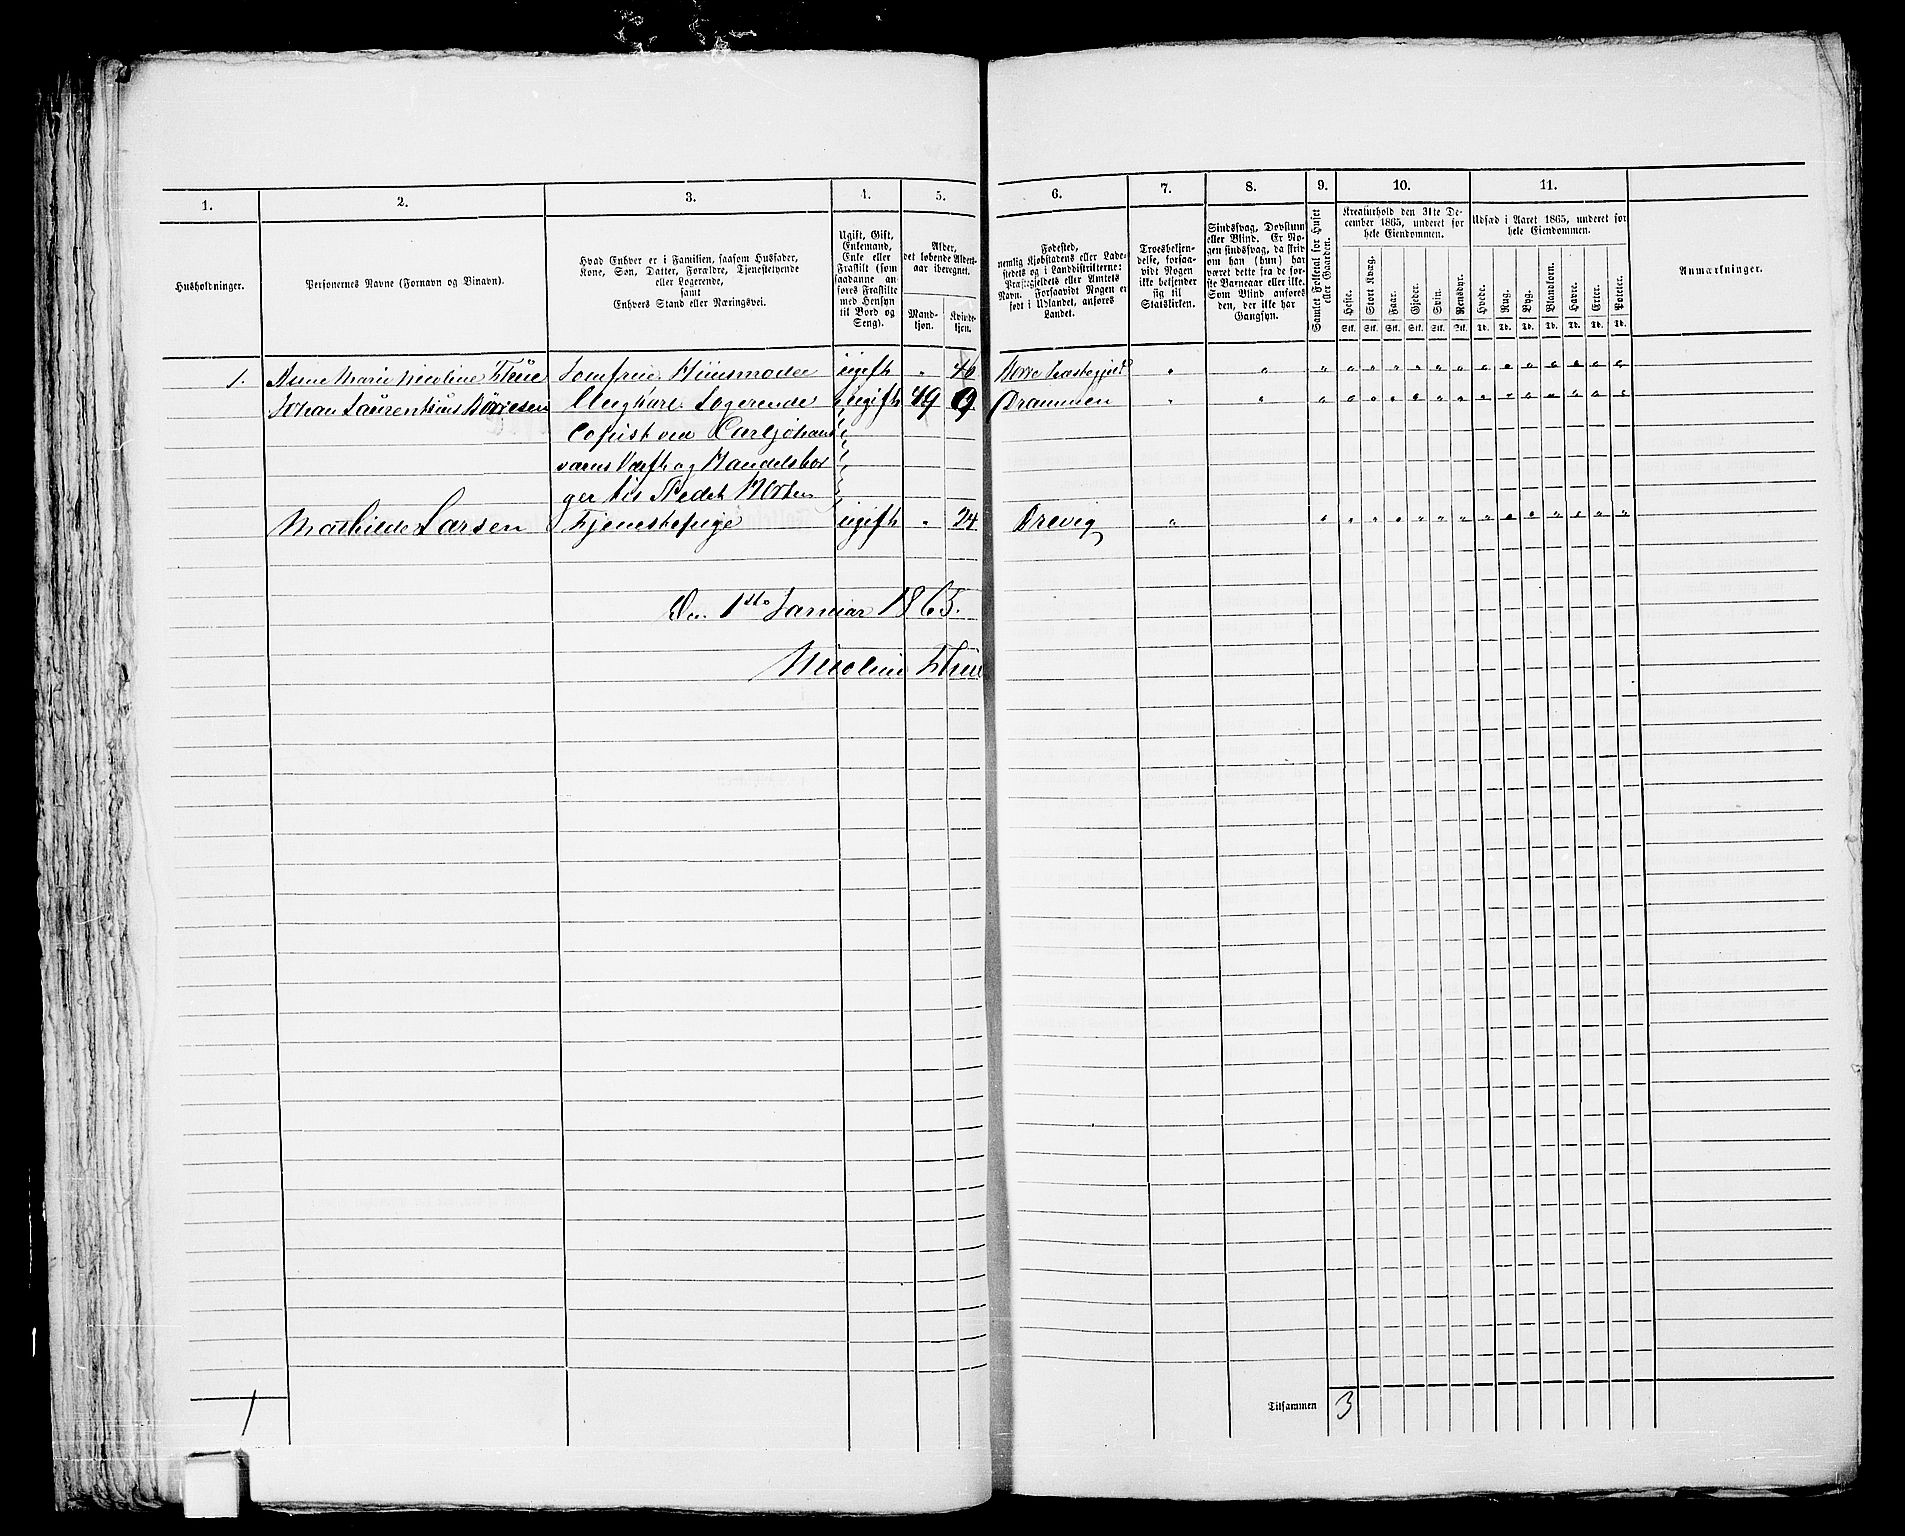 1. 2. 3. 4. 5. 6. 7. 8. 9. 10. 11.
Husholdninger.
Personernes Navne (Fornavn og Binavn).
Hvad Enhver er i Familien, saasom Husfader,
Kone, Søn, Datter, Forældre, Tjenestetyende
eller Logerende,
samt
Enhvers Stand eller Næringsvei.
Ugift, Gift,
Enkemand,
Enke eller
Fraskilt (som
saadanne an
føres Fraskilte
med Hensyn
til Bord og
Seng).
Alder,
det løbende Alders-
aar iberegnet.
Mand-
kjøn.
Kvinde-
kjøn.
Fødested,
nemlig Kjøbstadens eller Lade-
stedets og i Landdistrikterne:
Præstegjeldets eller Amtets
Navn. Forsaavidt Nogen er
født i Udlandet, anføres
Landet.
Troesbekjen-
delse, forsaa-
vidt Nogen
ikke bekjender
sig til
Statskirken.
Sindssvag, Døvstum
eller Blind. Er No-
gen sindssvag, da skriv
om han (hun) har
været dette fra de før-
ste Barneaar eller ikke.
Som Blind anføres
den, der ikke har
Gangsyn.
Samlet Folketal for Huset
eller Gaarden.
Kreaturhold den 31te De-
cember 1865, underet for
hele Eiendommen.
Heste. Stort Kvæg. Faar. Gjeder. Svin. Rensdyr.
Stk. Stk. Stk. Stk. Stk. Stk.
Udsæd i Aaret 1865, underet for
hele Eiendommen.
Hvede. Rug. Byg. Blandkorn. Havre. Erter. Poteter.
Td. Td. Td. Td. Td. Td. Td.
Anmærkninger.
1. Anne Marie Nicoline Thue Jomfrue Huusmoder ugift " 46 Borre Præstegjeld " " " " " " " " " " " " " " " "
Johan Laurentius Børresen Ungkarl Logerende ugift 49 Drammen " " " " " " " " " " " " " " " "
Copist ved Carljohans
værns Værft og Handelsbor
ger til Stedet Horten
Mathilde Larsen Tjenestepige ugift " 24 Drevig " " " " " " " " " " " " " " "
Den 1ste Januar 1865.
Nicoline Thue
1
Tilsammen 3